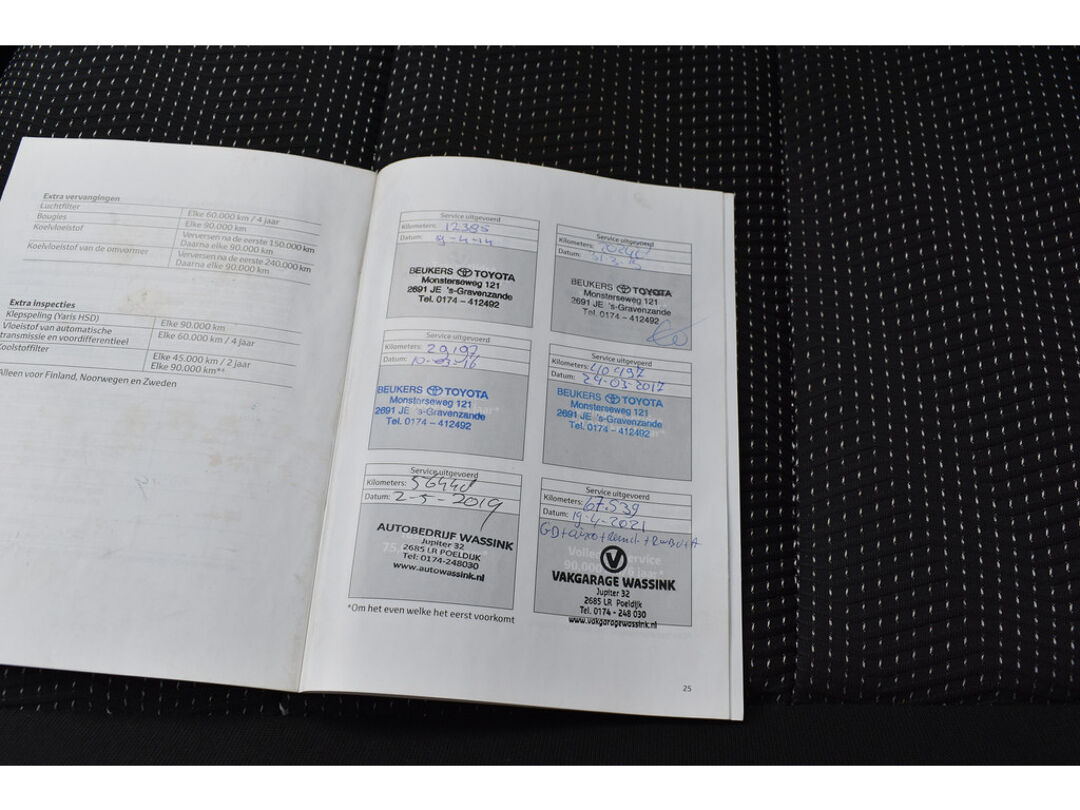 Extra vervangingen
Luchtfilter Elke 60.000 km / 4 jaar
Bougies Elke 90.000 km
Koelvloeistof Verversen na de eerste 150.000 km
Daarna elke 90.000 km
Koelvloeistof van de omvormer Verversen na de eerste 240.000 km
Daarna elke 90.000 km
Extra inspecties
Klepspeling (Yaris HSD) Elke 90.000 km
Vloeistof van automatische
transmissie en voordifferentieel Elke 60.000 km / 4 jaar
oolstoffilter Elke 45.000 km / 2 jaar
Elke 90.000 km*⁴
Alleen voor Finland, Noorwegen en Zweden
Service uitgevoerd
Kilometers: 12385
Datum: 9-4-14
BEUKERS TOYOTA
Monsterseweg 121
2691 JE 's-Gravenzande
Tel. 0174 - 412492
Service uitgevoerd
Kilometers:
Datum: 31-3-15
BEUKERS TOYOTA
Monsterseweg 121
2691 JE 's-Gravenzande
Tel. 0174 - 412492
Service uitgevoerd
Kilometers: 29197
Datum: 10-03-16
BEUKERS TOYOTA
Monsterseweg 121
2691 JE 's-Gravenzande
Tel. 0174 - 412492
Service uitgevoerd
Kilometers: 40497
Datum: 24-03-2017
BEUKERS TOYOTA
Monsterseweg 121
2691 JE 's-Gravenzande
Tel. 0174 - 412492
Service uitgevoerd
Kilometers: 56448
Datum: 2-5-2019
AUTOBEDRIJF WASSINK
Jupiter 32
2685 LR POELDIJK
Tel: 0174-248030
www.autowassink.nl
Service uitgevoerd
Kilometers: 67.539
Datum: 19-4-2021
VAKGARAGE WASSINK
Jupiter 32
2685 LR Poeldijk
Tel. 0174 - 248 030
www.vakgaragewassink.nl
*Om het even welke het eerst voorkomt
25